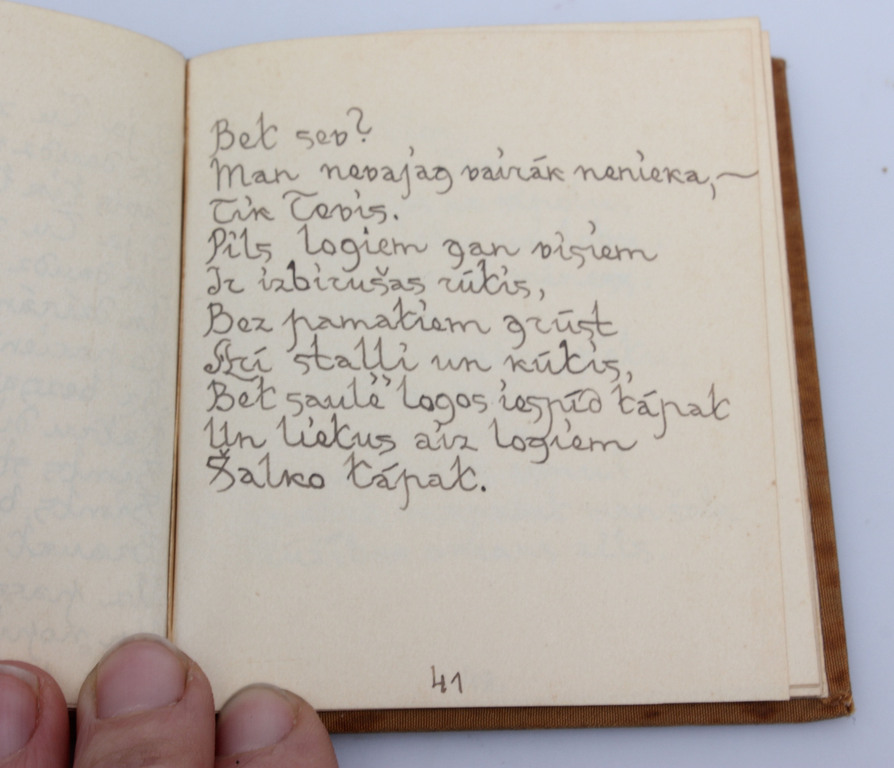 Bet sev?
Man nevajag vairāk nenieka, —
Tik Tevis.
Pils logiem gan visiem
Ir izbirušas rūtis,
Bez pamatiem grūst
Arī stalli un kūtis,
Bet saule logos iespīd tāpat
Un lietus aiz logiem
Šalko tāpat.
41